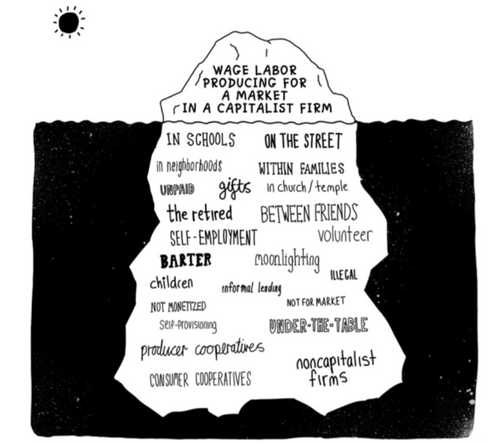 WAGE LABOR
PRODUCING FOR
A MARKET
IN A CAPITALIST FIRM
IN SCHOOLS ON THE STREET
in neighborhoods WITHIN FAMILIES
UNPAID gifts in church/temple
the retired BETWEEN FRIENDS
SELF-EMPLOYMENT volunteer
BARTER moonlighting
ILLEGAL
children informal lending
NOT MONETIZED NOT FOR MARKET
Self-Provisioning UNDER-THE-TABLE
producer cooperatives
noncapitalist
CONSUMER COOPERATIVES firms